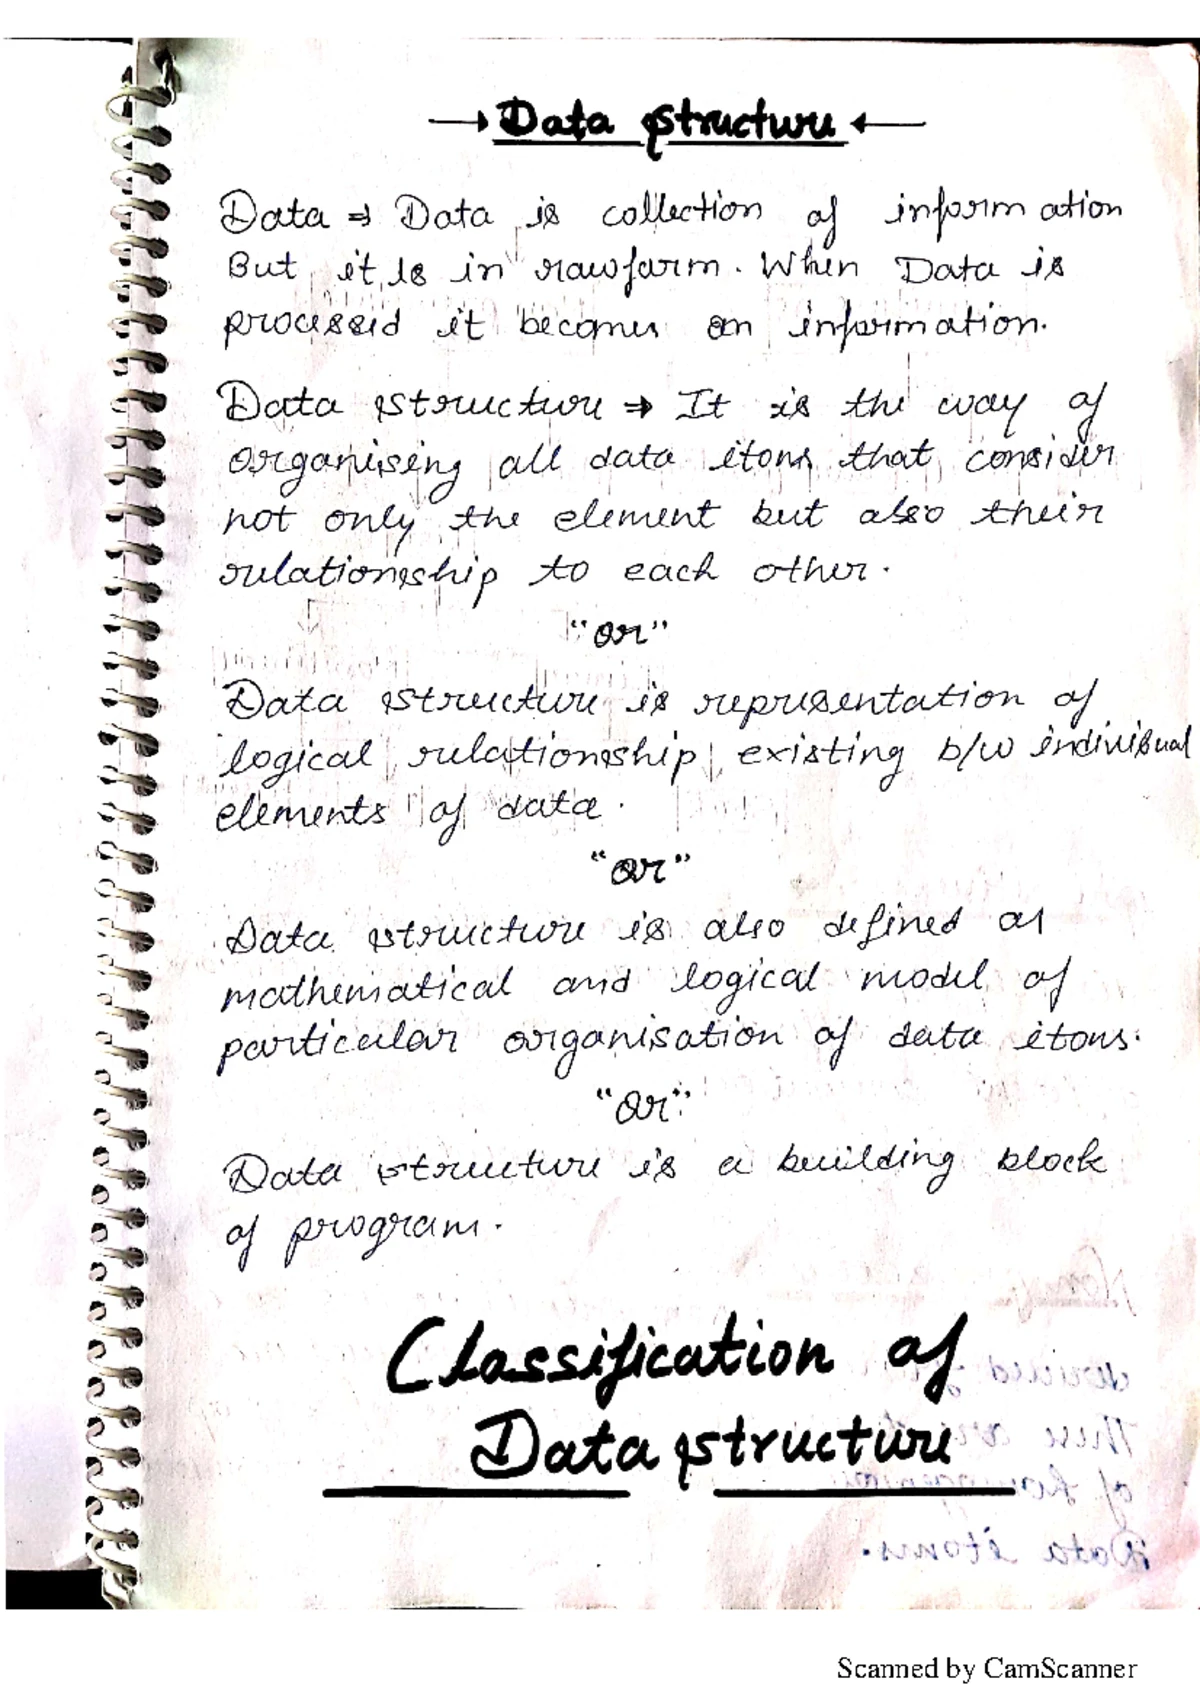 → Data structure ←
Data ⇒ Data is collection of information
But it is in raw farm. When Data is
processed it becomes an information.
Data structure ⇒ It is the way of
organising all data itoms that consider
not only the element but also their
relationship to each other.
"or"
Data structure is representation of
logical relationship existing b/w indivisual
elements of data.
"or"
Data structure is also defined as
mathematical and logical model of
particular organisation of data itoms.
"or"
Data structure is a building block
of program.
Classification of
Data structure
Scanned by CamScanner